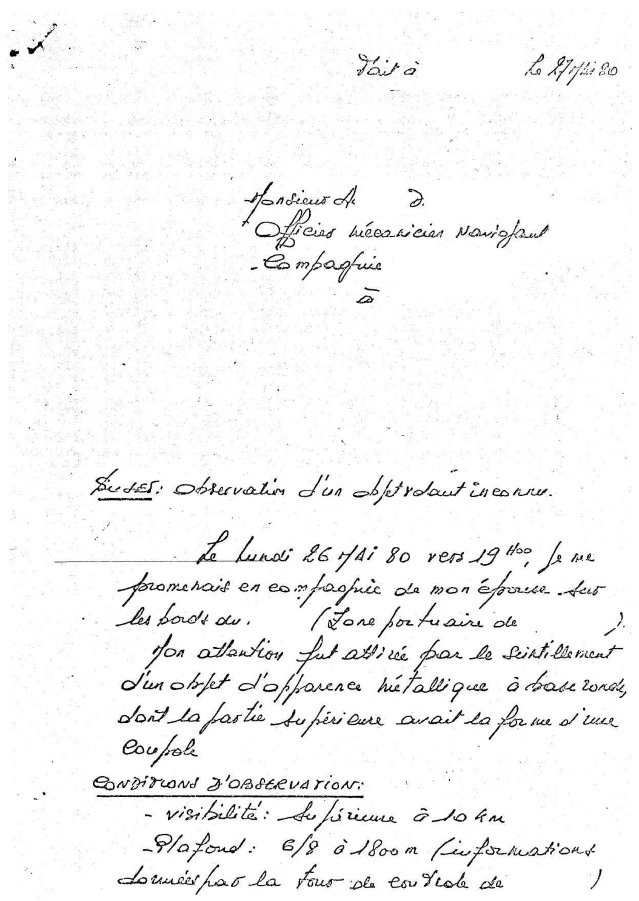 Fait à Le 27 MAI 80
Monsieur A. D.
Officier Mécanicien Navigant
Compagnie
à
SUJET: Observation d'un objet volant inconnu.
Le Lundi 26 MAI 80 vers 19H00, je me
promenais en compagnie de mon épouse sur
les bords du. (Zone portuaire de ).
Mon attention fut attirée par le scintillement
d'un objet d'apparence métallique à base ronde,
dont la partie supérieure avait la forme d'une
coupole
CONDITIONS D'OBSERVATION:
- visibilité: supérieure à 10 km
- Plafond: 6/8 à 1800m (informations
données par la tour de contrôle de )